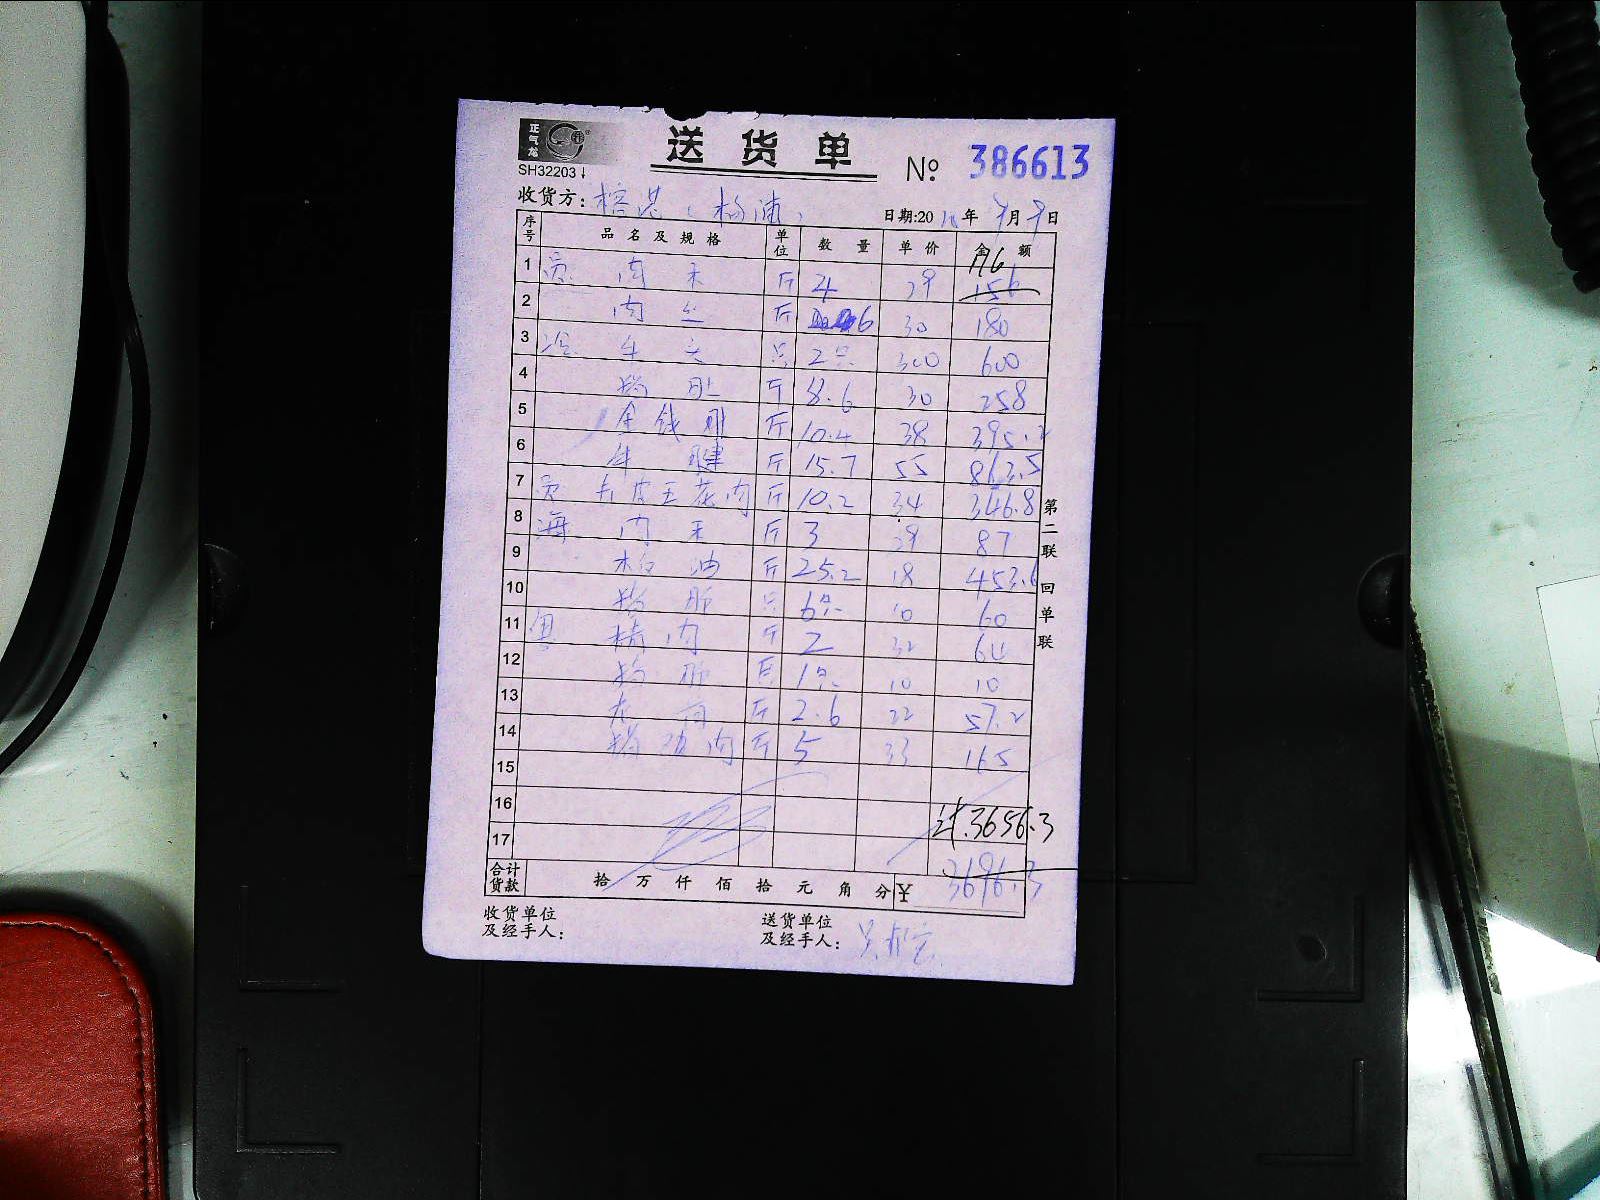 正气龙
送货单
No 386613
SH32203↓
收货方: (杨浦)
日期:20 年 9月9日
序号 品名及规格 单位 数量 单价 金额
116
1 贡 肉末 斤 4 29 156
2 肉丝 斤 6 30 180
3 冷 牛 只 2只 300 600
4 猪肚 斤 8.6 30 258
5 金钱肚 斤 10.4 38 395.2
6 牛腱 斤 15.7 55 863.5
7 贡 去皮五花肉 斤 10.2 34 346.8
8 海 肉末 斤 3 29 87
9 板油 斤 25.2 18 453.6
10 猪 只 6只 10 60
11 粤 精肉 斤 2 32 64
12 猪 1只 10 10
13 龙骨 斤 2.6 22 57.2
14 猪 肉 斤 5 33 165
15
16
计.3656.3
17
合计货款 拾万仟佰拾元角分 ¥ 3696.3
收货单位
及经手人:
送货单位
及经手人:
第二联 回单联